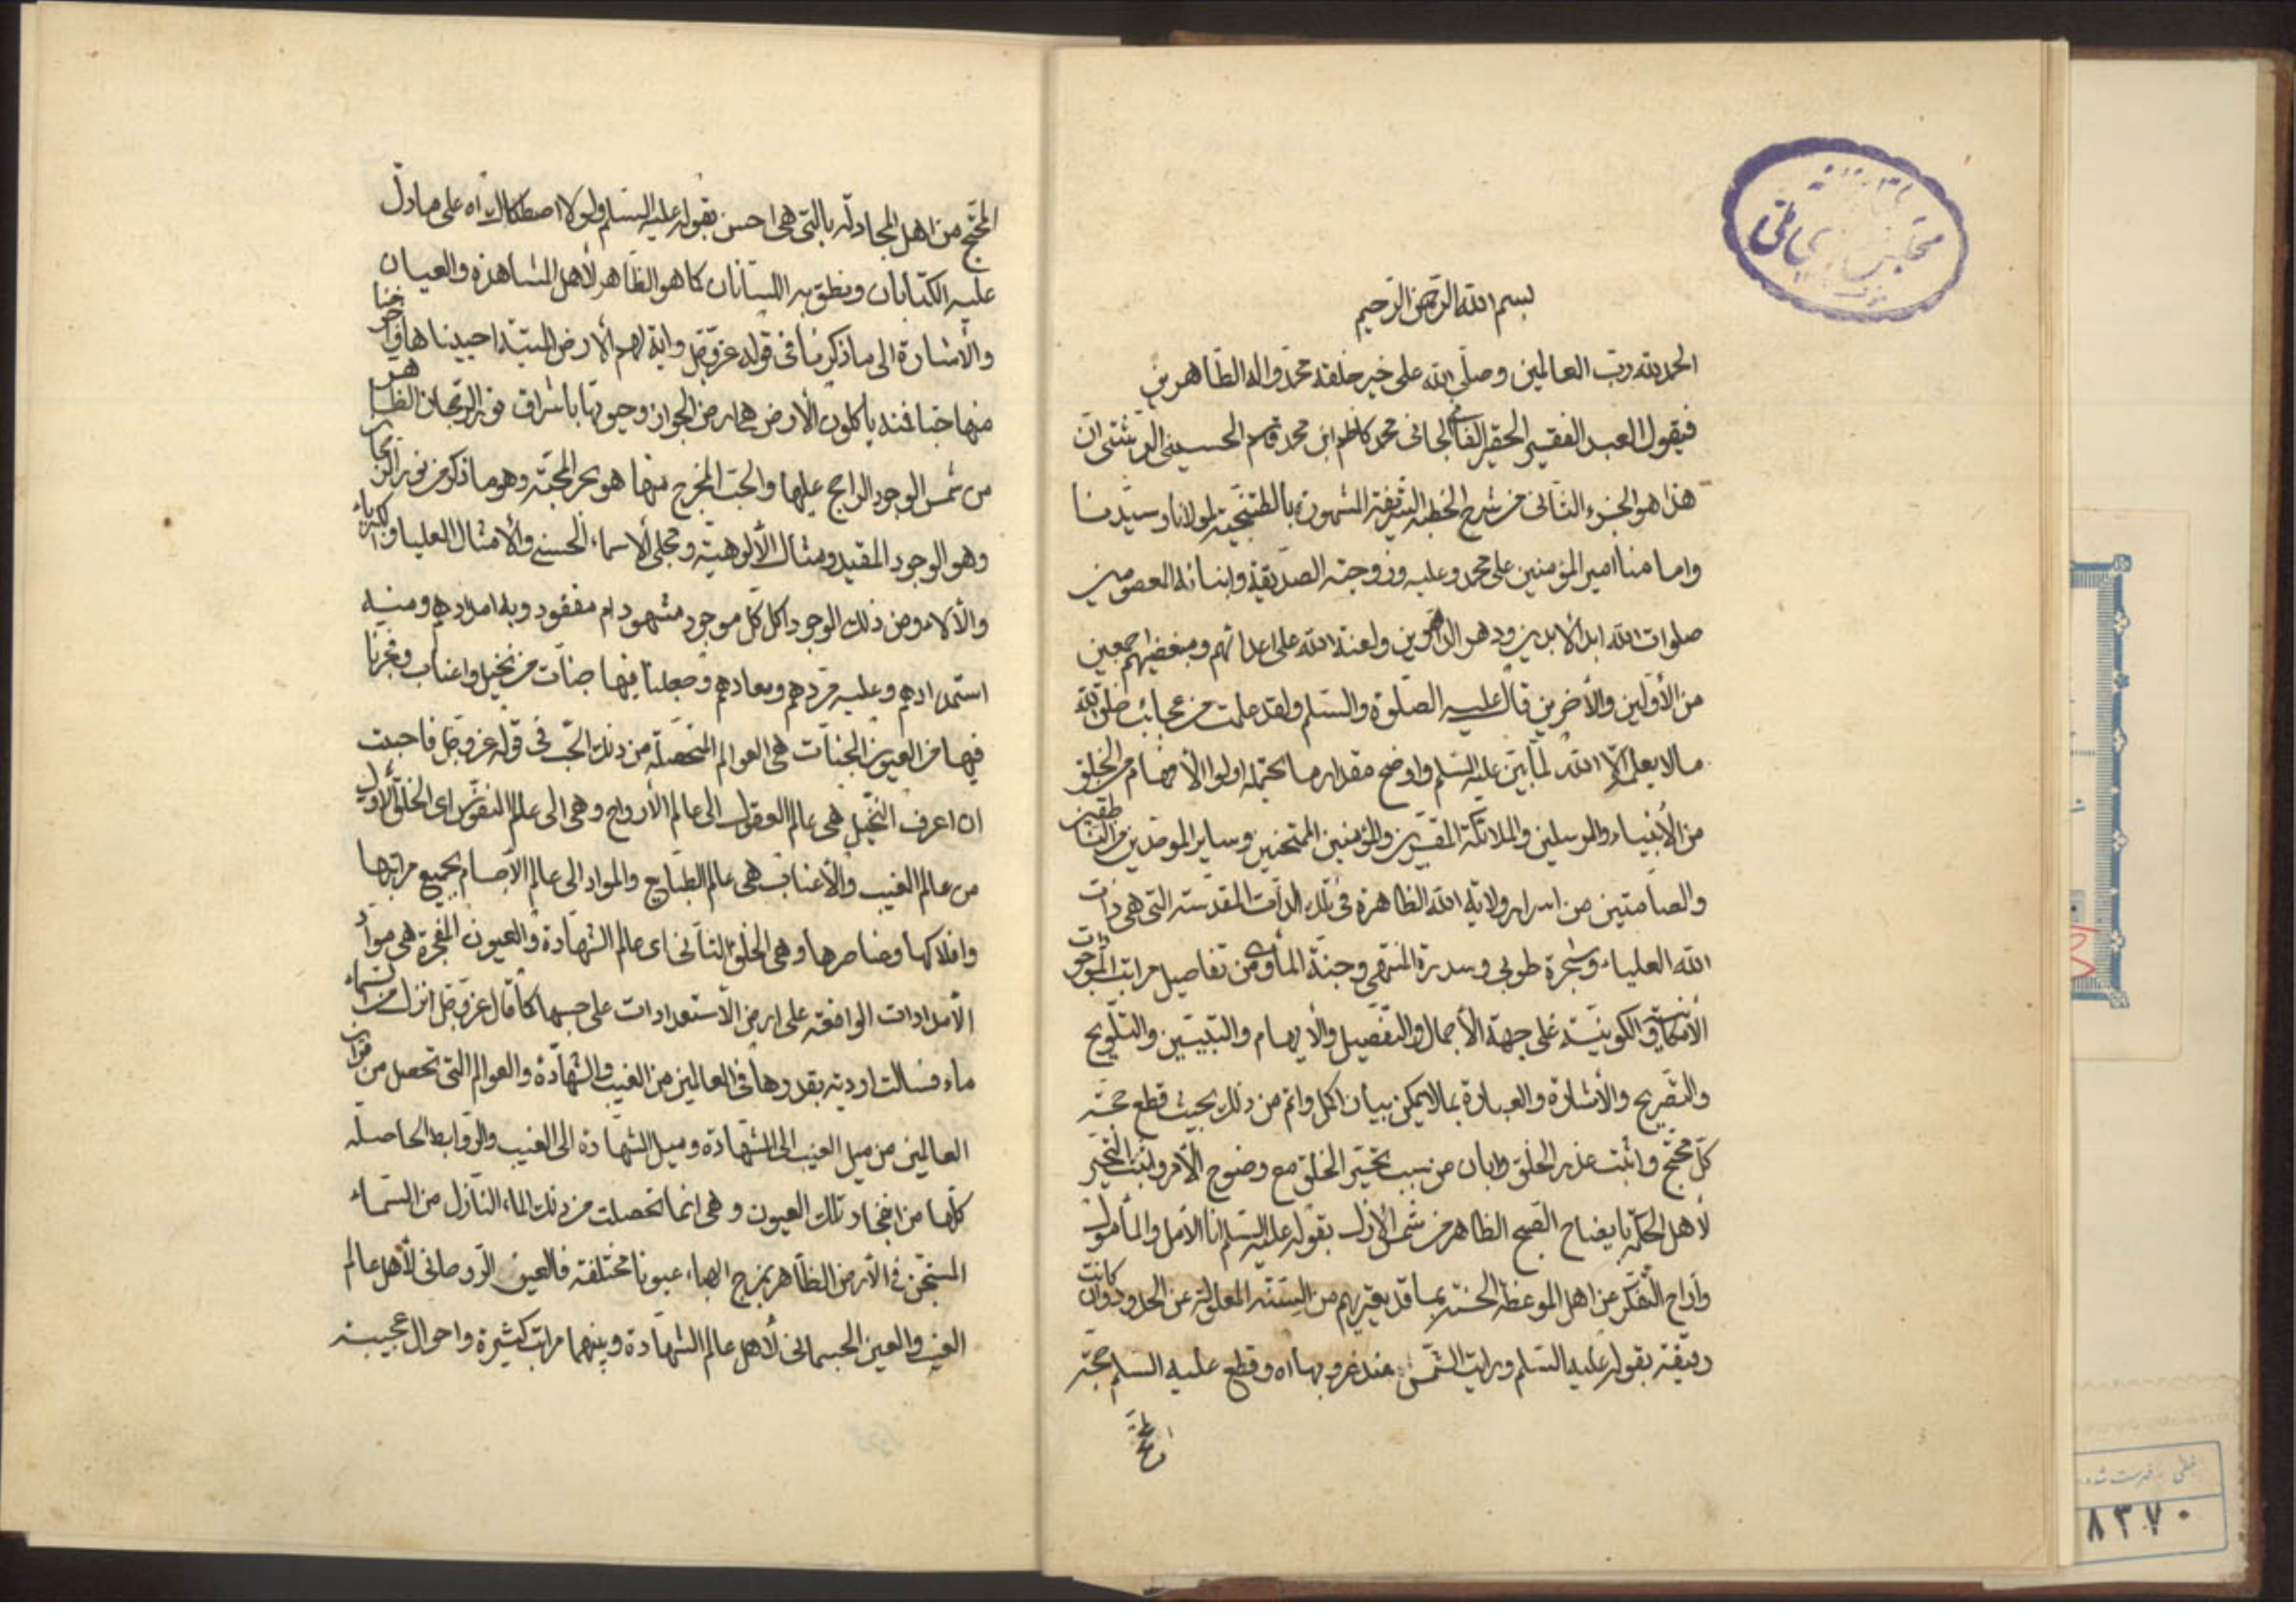 بسم الله الرحمن الرحيم
الحمد لله رب العالمين وصلى الله على خير خلقه محمد واله الطاهرين
فيقول العبد الفقير الحقير الفاني الجاني محمد كاظم ابن محمد قاسم الحسيني الرشتي ان
هذا هو الجزء الثاني من شرح الخطبة الشريفة المشهورة بالطتنجية لمولانا وسيدنا
وامامنا امير المؤمنين على محمد وعليه وزوجته الصديقة وابنائه المعصومين
صلوات الله ابد الابدين ودهر الداهرين ولعنة الله على اعدائهم ومبغضيهم اجمعين
من الأولين والأخرين قال عليه الصلوة والسلم ولقد علمت من عجائب خلق الله
مالا يعلمه الا الله لما بين عليه السلم واوضح مقدار ما يحتمله اولوا الأفهام من الخلق
من الأنبياء والمرسلين والملائكة المقربين والمؤمنين الممتحنين وساير الموحدين والناطقين
والصامتين من اسرار ولاية الله الظاهرة في تلك الذات المقدسة التي هي ذات
الله العلياء وشجرة طوبى وسدرة المنتهى وجنة المأوى من تفاصيل مراتب الموجودات
الأمكانية والكونية على جهة الأجمال والتفصيل والأبهام والتبيين والتلويح
والتصريح والأشارة والعبارة بما لا يمكن بيان اكمل واتم من ذلك بحيث قطع حجة
كل محتج واثبت عذر الخلق وابان من سبب تحير الخلق مع وضوح الأمر واثبت التحير
لأهل الحكمة بايضاح الصبح الظاهر من شمس الأزل بقوله عليه السلم انا الأمل والمأمول
وازاح التفكر عن اهل الموعظة الحسنة بما قد يعتريهم من السنة المعلولة عن الحدود وان كانت
دقيقة بقوله عليه السلم ورايت الشمس عند غروبها اه وقطع عليه السلم حجة
المحتج
المحتج من اهل المجادلة بالتي هي احسن بقوله عليه السلم ولولا اصطكاك اه على ما دل
عليه الكتابان ونطق به اللسانان كما هو الظاهر لأهل المشاهدة والعيان
والأشارة الى ما ذكرنا في قوله عز وجل واية لهم الأرض الميتة احييناها واخرجنا
منها حبا فمنه يأكلون الأرض هي ارض الجواز وحيوتها باشراق نور الرجحان الظاهر
من شمس الوجود الراجح عليها والحب المخرج منها هو بحر المحبة وهو ما ذكر من نور البحار
وهو الوجود المقيد ومثال الألوهية ومجلى الاسماء الحسنى والأمثال العليا والكبرياء
والألاء ومن ذلك الوجود اكل كل موجود مشهود ام مفقود وبه امدادهم ومنه
استمدادهم وعليه مردهم ومعادهم وجعلنا فيها جنات من نخيل واعناب وفجرنا
فيها من العيون الجنات هي العوالم المتحصلة من ذلك الحب في قوله عز وجل فاحببت
ان اعرف النخيل هي عالم العقول الى عالم الأرواح وهي الى عالم النفوس اى الخلق الأول
من عالم الغيب والأعناب هي عالم الطبايع والمواد الى عالم الاجسام بجميع مراتبها
وافلاكها وعناصرها وهي الخلق الثاني اى عالم الشهادة والعيون المفجرة هي مواد
الأمدادات الواقعة على ارض الاستعدادات على حسبها كما قال عز وجل انزل من السماء
ماء فسالت اودية بقدرها في العالمين من الغيب والشهادة والعوالم التي تحصل من قران
العالمين من ميل الغيب الى الشهادة وميل الشهادة الى الغيب والروابط الحاصلة
كلها من انفجار تلك العيون وهي انما تحصلت من ذلك الماء النازل من السماء
المستجن في الأرض الظاهر بمزج الهباء عيونا مختلفة فالعين الروحاني لأهل عالم
الغيب والعين الجسماني لأهل عالم الشهادة وبينهما مراتب كثيرة واحوال عجيبة
٨٣٧٠